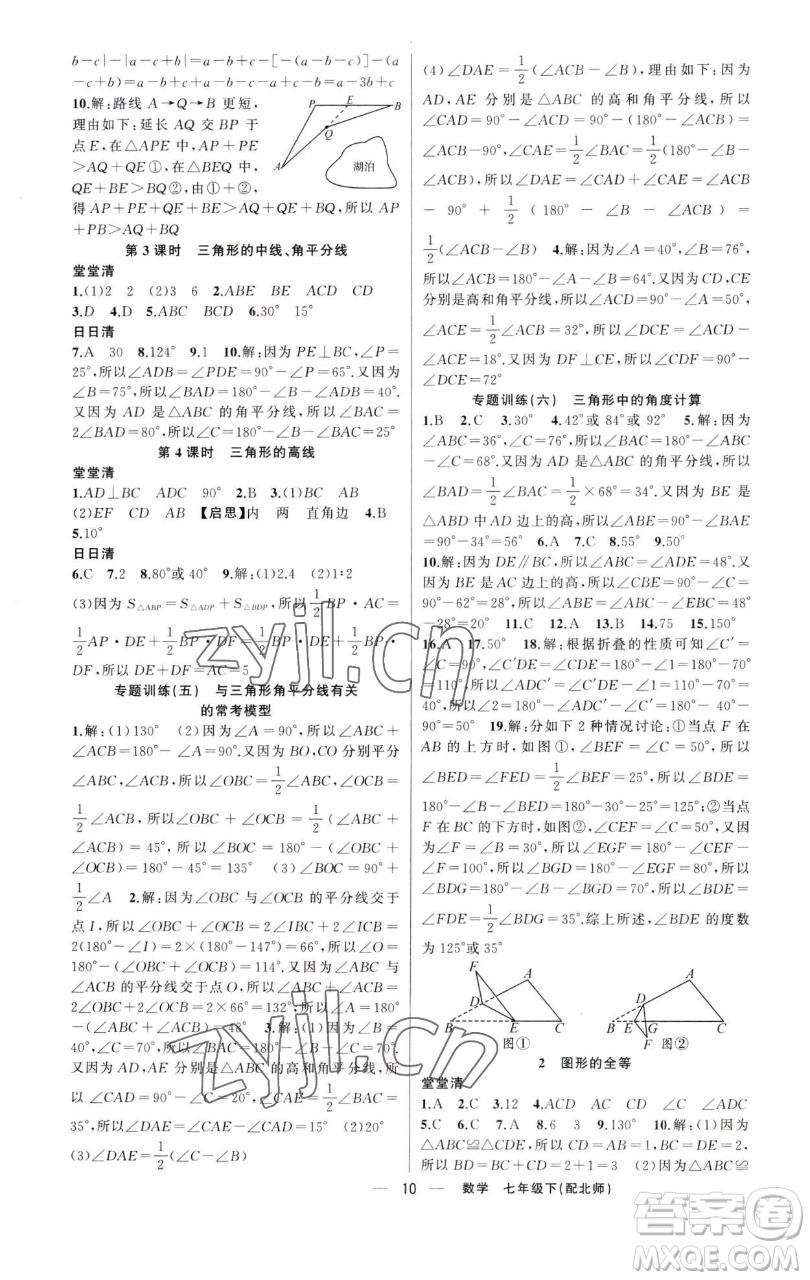 b-c|-|a-c+b|=a-b+c-[-(a-b-c)]-(a
-c+b)=a-b+c+a-b-c-a+c-b=a-3b+c
10.解:路线 A→Q→B 更短,
理由如下:延长 AQ 交 BP 于
点 E,在△APE 中,AP+PE
>AQ+QE①,在△BEQ 中,
QE+BE>BQ②,由①+②,
得 AP+PE+QE+BE>AQ+QE+BQ,所以 AP
+PB>AQ+BQ
P E B
Q
A
湖泊
第 3 课时 三角形的中线、角平分线
堂堂清
1.(1)2 2 (2)3 6 2.ABE BE ACD CD
3.D 4.D 5.ABC BCD 6.30° 15°
日日清
7.A 30 8.124° 9.1 10.解:因为 PE⊥BC,∠P=
25°,所以∠ADC=∠PDE=90°-∠P=65°.又因为
∠B=75°,所以∠BAD=180°-∠B-∠ADB=40°.
又因为 AD 是△ABC 的角平分线,所以∠BAC=
2∠BAD=80°,所以∠C=180°-∠B-∠BAC=25°
第 4 课时 三角形的高线
堂堂清
1.AD⊥BC ADC 90° 2.B 3.(1)BC AB
(2)EF CD AB 【启思】内 两 直角边 4.B
5.10°
日日清
6.C 7.2 8.80°或 40° 9.解:(1)2.4 (2)1:2
(3)因为 S△ABP=S△ADP+S△BDP,所以 1/2 BP·AC=
1/2 AP·DE+1/2 BP·DF.又因为 AP=BP,所以 DE+DF=AC=5
专题训练(五) 与三角形角平分线有关
的常考模型
1.解:(1)130° (2)因为∠A=90°,所以∠ABC+
∠ACB=180°-∠A=90°.又因为 BO,CO 分别平分
∠ABC,∠ACB,所以∠OBC=1/2∠ABC,∠OCB=
1/2∠ACB,所以∠OBC+∠OCB=1/2(∠ABC+
∠ACB)=45°,所以∠BOC=180°-(∠OBC+
∠OCB)=180°-45°=135° (3)∠BOC=90°+
1/2∠A 2.解:因为∠OBC 与∠OCB 的平分线交于
点 I,所以∠OBC+∠OCB=2(∠IBC+∠ICB)=
2(180°-∠I)=2×(180°-147°)=66°,所以∠O=
180°-(∠OBC+∠OCB)=114°.又因为∠ABC 与
∠ACB 的平分线交于点 O,所以∠ABC+∠ACB=
2(∠OBC+∠OCB)=2×66°=132°,所以∠A=180°
-(∠ABC+∠ACB)=48° 3.解:(1)因为∠B=
40°,∠C=70°,所以∠BAC=180°-∠B-∠C=70°.
因为 AD,AE 分别是△ABC 的高和角平分线,所
以∠CAD=90°-∠C=20°,∠CAE=1/2∠BAC=
35°,所以∠DAE=∠CAE-∠CAD=15° (2)20°
(3)∠DAE=1/2(∠C-∠B)
(4)∠DAE=1/2(∠ACB-∠B),理由如下:因为
AD,AE 分别是△ABC 的高和角平分线,所以
∠CAD=90°-∠ACD=90°-(180°-∠ACB)=
∠ACB-90°,∠CAE=1/2∠BAC=1/2(180°-∠B-
∠ACB),所以∠DAE=∠CAD+∠CAE=∠ACB
-90°+1/2(180°-∠B-∠ACB)=
1/2(∠ACB-∠B) 4.解:因为∠A=40°,∠B=76°,
所以∠ACB=180°-∠A-∠B=64°.又因为 CD,CE
分别是高和角平分线,所以∠ACD=90°-∠A=50°,
∠ACE=1/2∠ACB=32°,所以∠DCE=∠ACD-
∠ACE=18°.又因为 DF⊥CE,所以∠CDF=90°-
∠DCE=72°
专题训练(六) 三角形中的角度计算
1.B 2.C 3.30° 4.42°或 84°或 92° 5.解:因为
∠ABC=36°,∠C=76°,所以∠BAC=180°-∠ABC
-∠C=68°.又因为 AD 是△ABC 的角平分线,所以
∠BAD=1/2∠BAC=1/2×68°=34°.又因为 BE 是
△ABD 中 AD 边上的高,所以∠ABE=90°-∠BAE=
90°-34°=56° 6.A 7.C 8.55° 9.50°
10.解:因为 DE∥BC,所以∠ABC=∠ADE=48°.又
因为 BE 是 AC 边上的高,所以∠EBC=90°-∠C=
90°-62°=28°,所以∠ABE=∠ABC-∠EBC=48°
-28°=20° 11.C 12.A 13.C 14.65° 15.150°
16.A 17.50° 18.解:根据折叠的性质可知∠C'=
∠C=90°,∠C'DE=∠CDE=180°-∠1=180°-70°
=110°,所以∠ADC'=∠C'DE-∠1=110°-70°=
40°,所以∠2=180°-∠C'-∠ADC'=180°-40°-
90°=50° 19.解:分如下 2 种情况讨论:①当点 F 在
AB 的上方时,如图①,∠BEF=50°,所以
∠BED=∠FED=1/2∠BEF=25°,所以∠BDE=
180°-∠B-∠BED=180°-30°-25°=125°;②当点
F 在 BC 的下方时,如图②,∠CEF=∠C=50°.又因
为∠F=∠B=30°,所以∠EGF=180°-∠CEF-
∠F=100°,所以∠BGD=180°-∠EGF=80°,所以
∠BDG=180°-∠B-∠BGD=70°,所以∠BDE=
∠FDE=1/2∠BDG=35°.综上所述,∠BDE 的度数
为 125°或 35°
F A D B E C
图①
A D B E G C F
图②
2 图形的全等
堂堂清
1.A 2.C 3.12 4.ACD AC CD ∠C ∠ADC
5.C 6.C 7.A 8.6 3 9.130° 10.解:(1)因为
△ABC≌△DEC,所以 CD=AC=1,CB=CE=2,
所以 BD=CD+CB=1+2=3 (2)因为△ABC≌
10 数学 七年级下(配北师)
zyjl.cn
zyjl.cn
答案圈
MXQE.COM